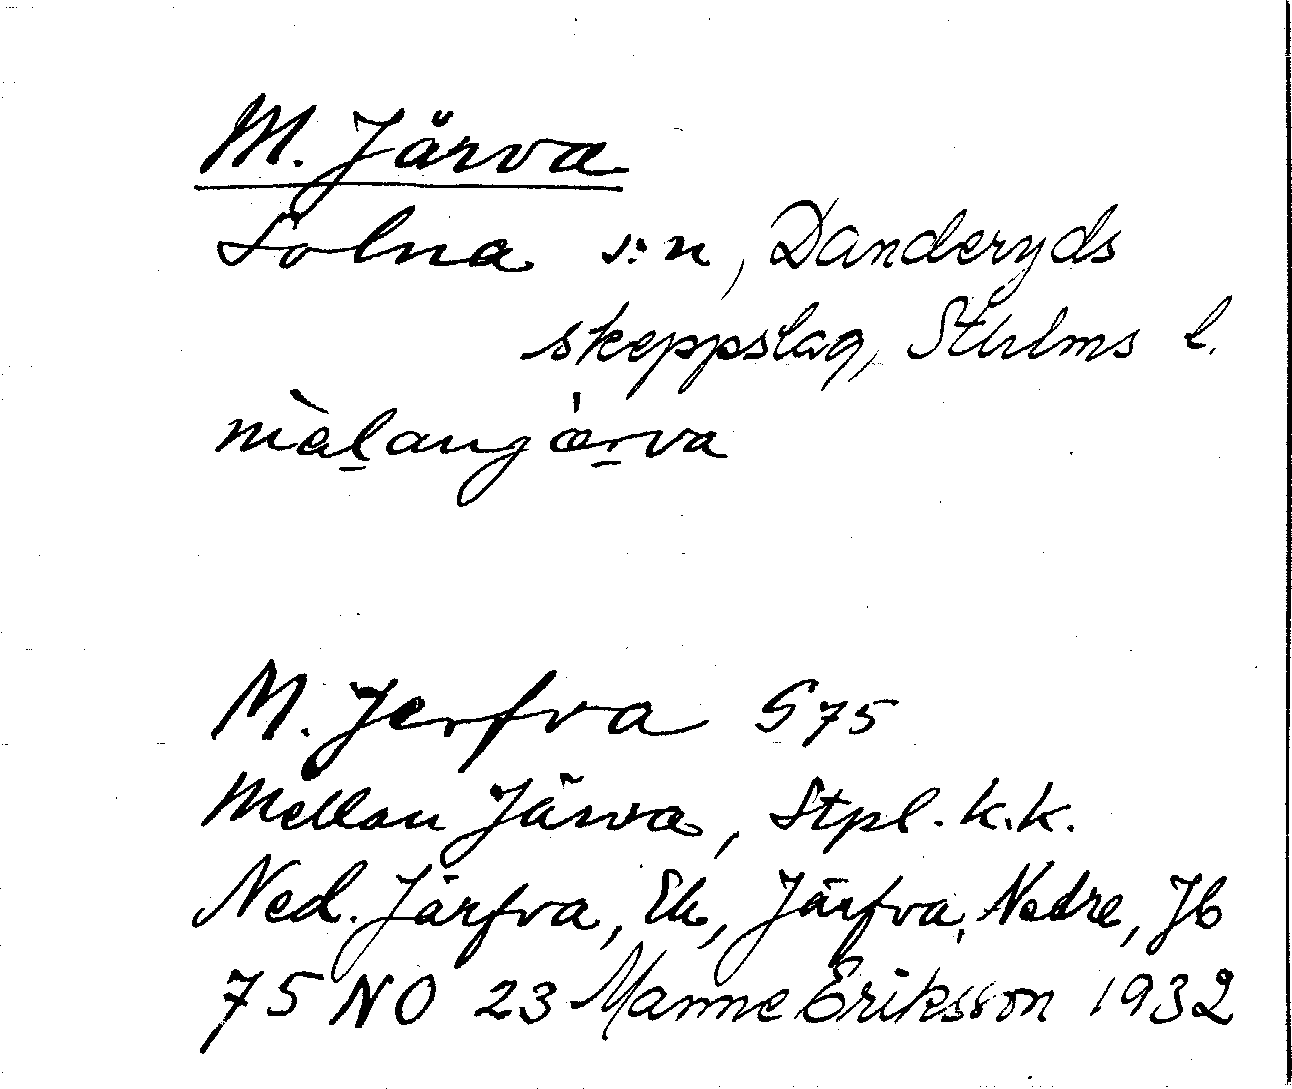 M. Järva
Solna s:n, Danderyds
skeppslag, Sthlms l.
mа̀l̲anjæ̀r̲va
M. Jerfva S75
Mellan Järva, Stpl. k.k.
Ned. Järfva, Ek, Järfva, Nedre, Jb
75 NO 23 Manne Eriksson 1932